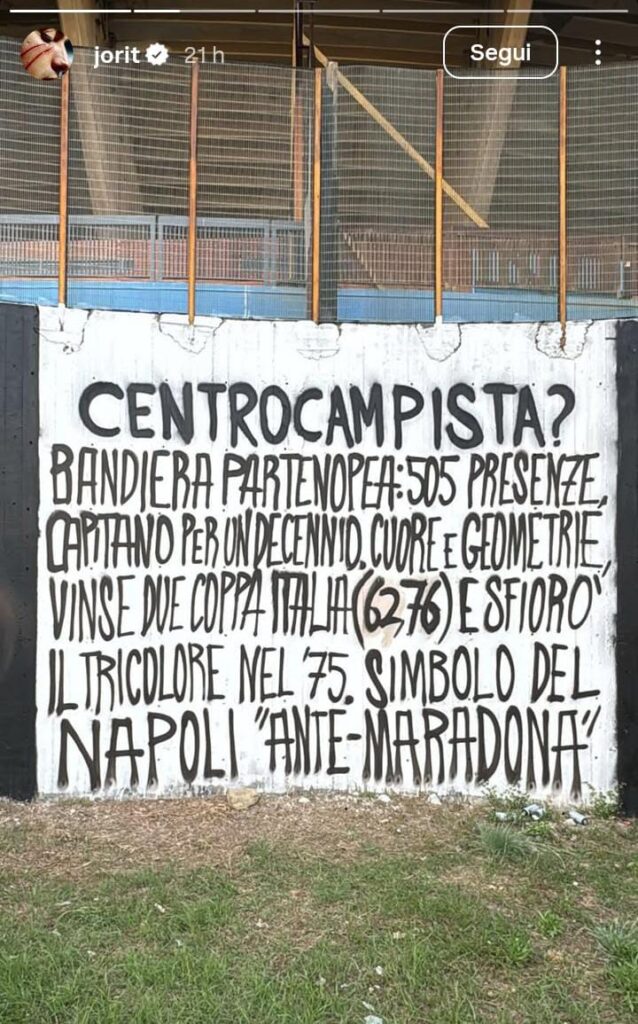 jorit 21 h
Segui
CENTROCAMPISTA?
BANDIERA PARTENOPEA: 505 PRESENZE,
CAPITANO PER UN DECENNIO. CUORE E GEOMETRIE,
VINSE DUE COPPA ITALIA (62 76) E SFIORO'
IL TRICOLORE NEL '75. SIMBOLO DEL
NAPOLI "ANTE-MARADONA"